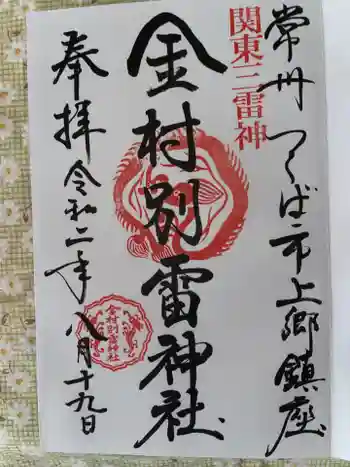 常州つくば市上郷鎮座
関東三雷神
金村別雷神社
奉拝
令和二年八月十九日
金村別雷神社